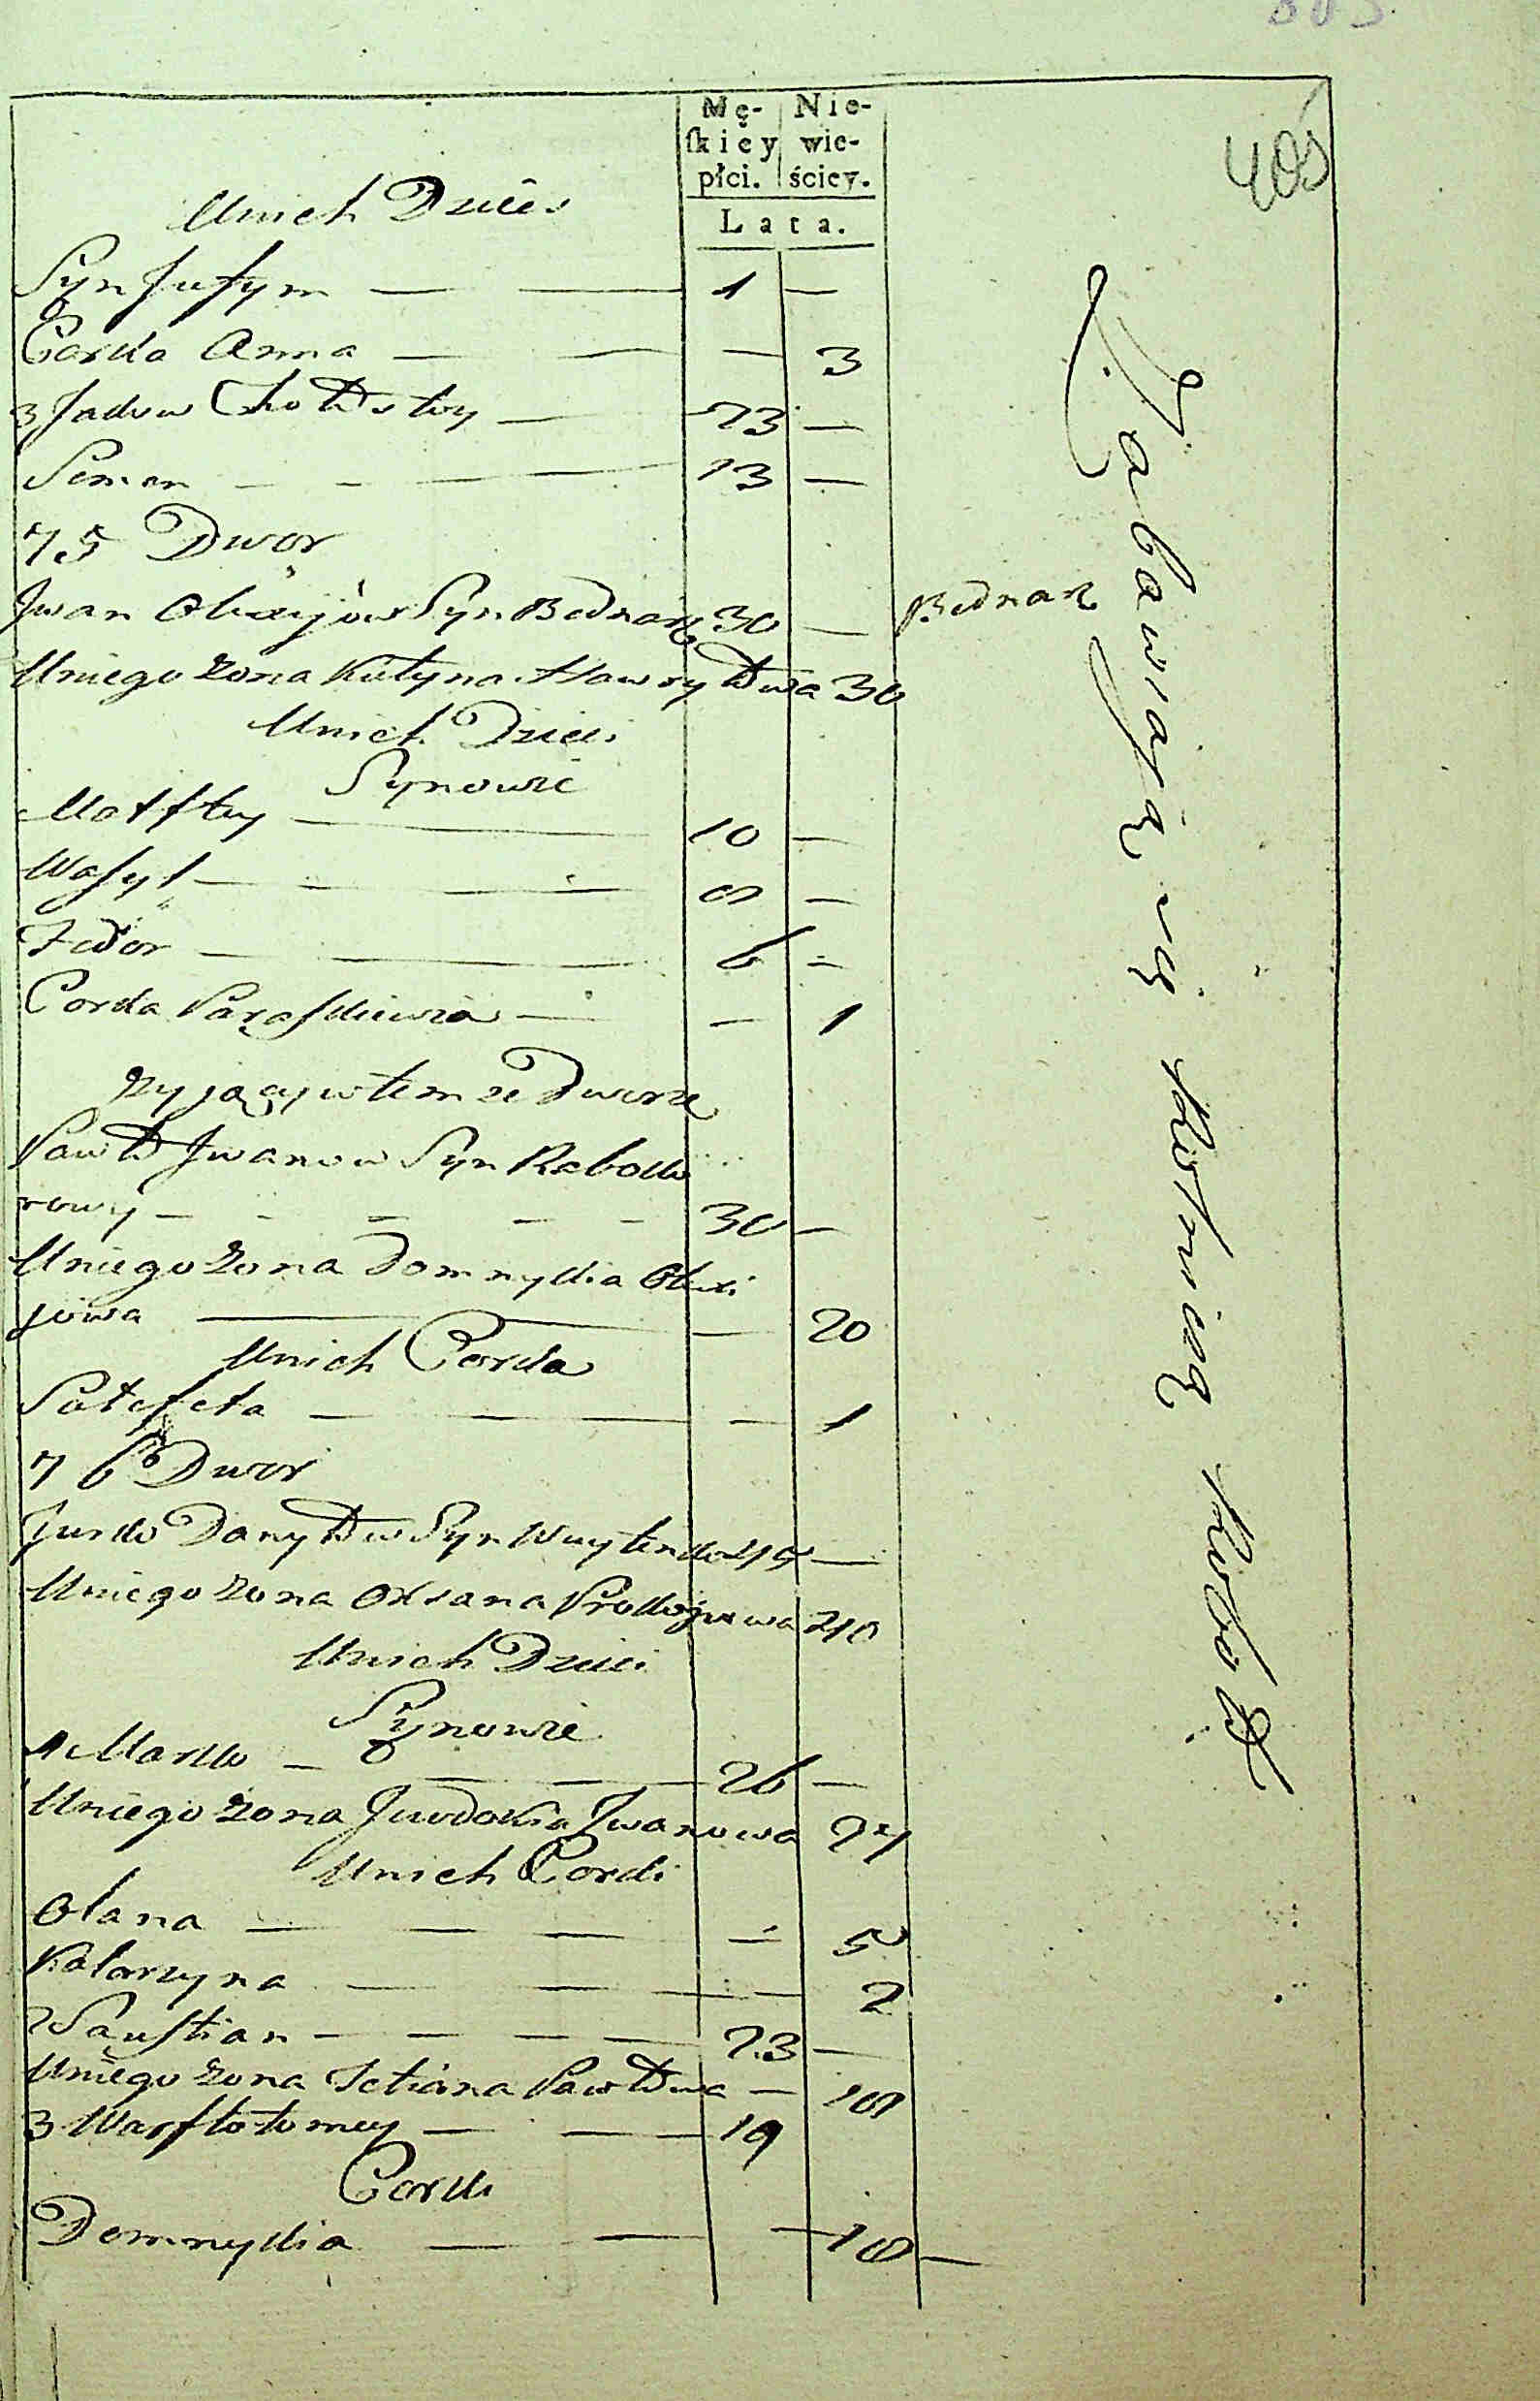 405
Mę- Nie-
skiey wie-
płci. ściey.
Lata.
Unich Dzieci
Syn Jufym — — 1 —
Corka Anna — — — 3
3 Jadow — 23 —
Semen — — — 13 —
75 Dwor
Jwan Olexijow Syn Bednarz 30 — Bednarz
Uniego zona Katyna Hawryłowa 30
Unich Dzieci
Synowie
Matfiy — 10 —
Wasyl — — — 8 —
Fedor — — 6 —
Corka Paraskiewia — — 1
zyjący w tem ze Dworze
Paweł Jwanow Syn
rowy — — — — — 30 —
Uniego zona Domnykia Olexi
jowa — — — 20
Unich Corka
— — — 1
76 Dwor
Jurko Danyłow Syn Wuytenko 49 —
Uniego zona Oxsana Prokopowa 40
Unich Dzieci
Synowie
1 Marko — — — 26 —
Uniego zona Juwdokia Jwanowa 24
Unich Corki
Olana — — — — 5
Katarzyna — — — — 2
2 Paustian — — — — 23 —
Uniego zona Tetiana Pawłowa — 18
3 Warfłołomey — — 19
Corki
Domnykia — — — 18 —
Zabawiaią się rolniczą robotą